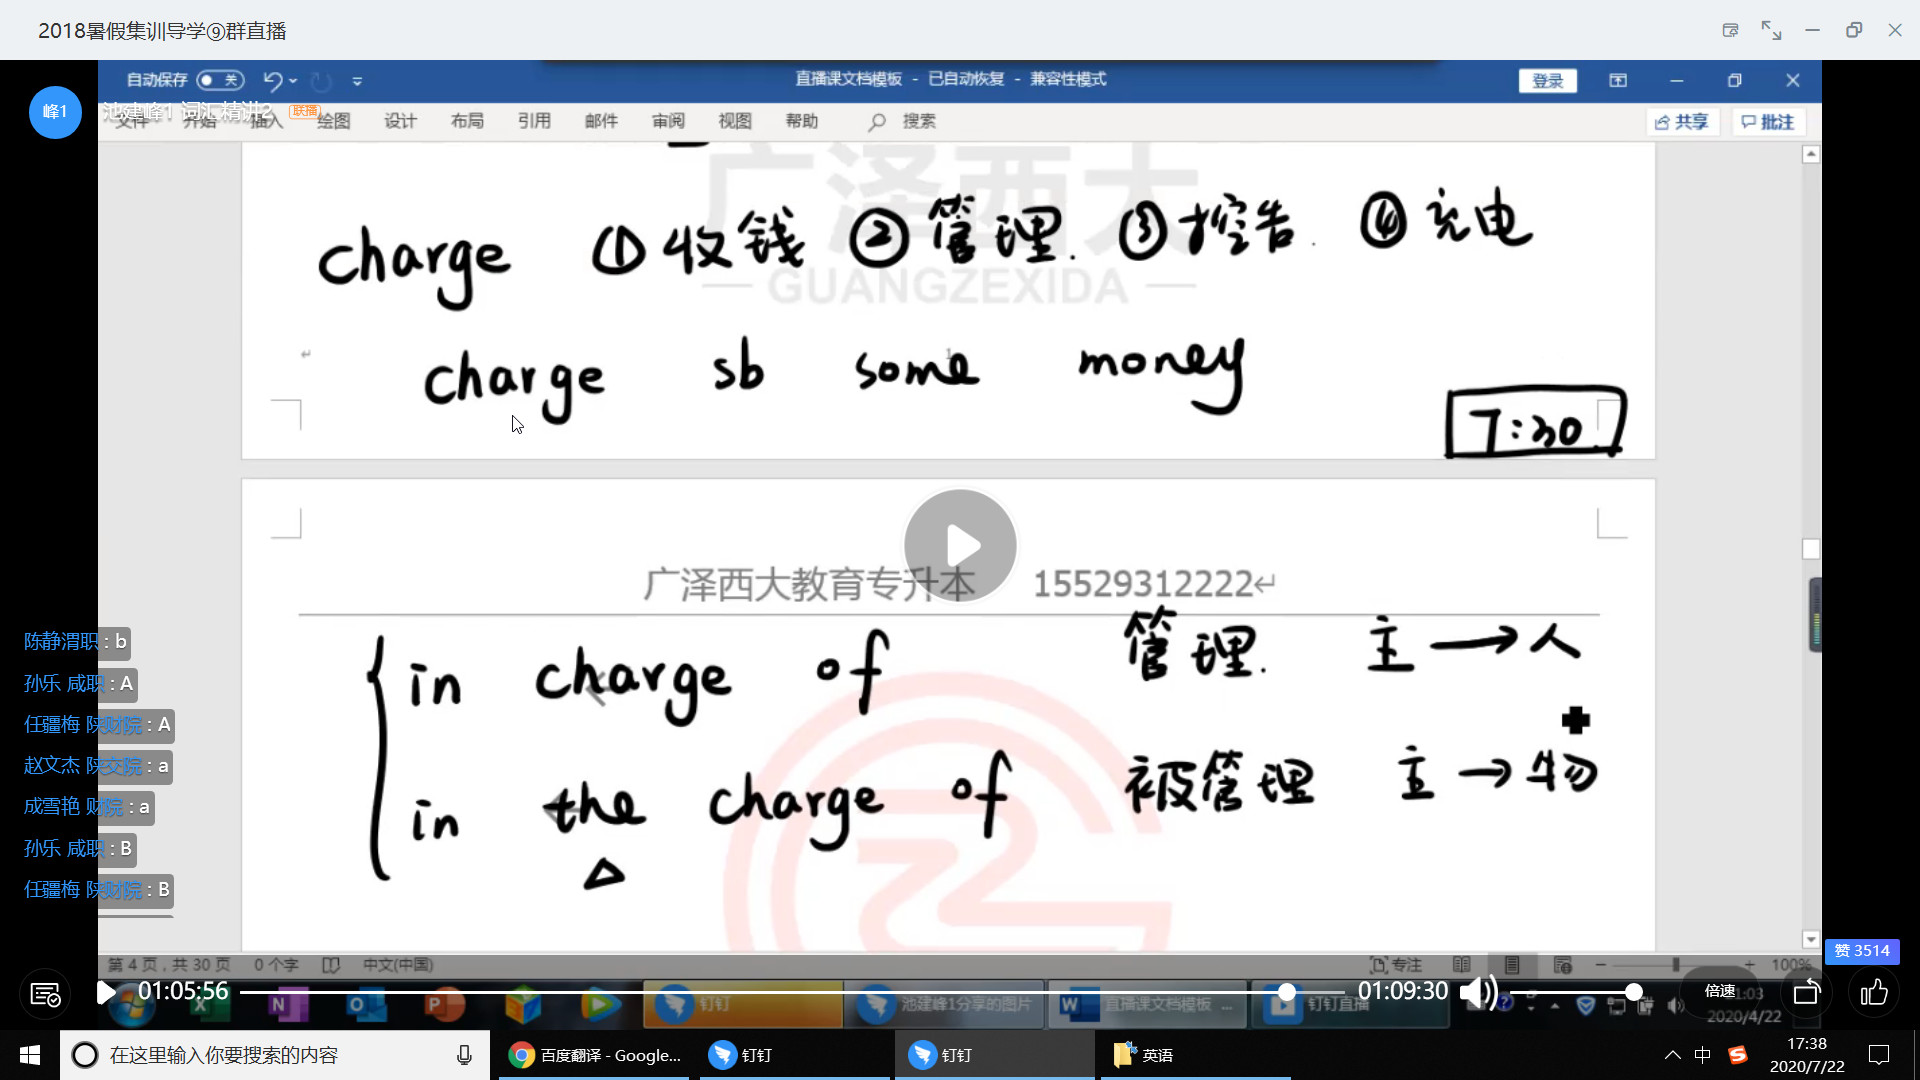 2018暑假集训导学⑨群直播
自动保存 关
直播课文档模板 - 已自动恢复 - 兼容性模式
登录
峰1
池建峰1 词汇精讲2 联播
文件 开始 插入 绘图 设计 布局 引用 邮件 审阅 视图 帮助 搜索
共享 批注
广泽西大
GUANGZEXIDA
charge ①收钱 ②管理. ③控告. ④充电
1
charge sb some money
7:30
广泽西大教育专升本 15529312222
in charge of 管理. 主→人
in the charge of 被管理 主→物
陈静渭职 : b
孙乐 咸职 : A
任疆梅 陕财院 : A
赵文杰 陕交院 : a
成雪艳 财院 : a
孙乐 咸职 : B
任疆梅 陕财院 : B
赞 3514
第 4 页，共 30 页 0 个字 中文(中国)
专注
100%
01:05:56
01:09:30
倍速
钉钉
池建峰1分享的图片
直播课文档模板 ...
钉钉直播
2020/4/22
在这里输入你要搜索的内容
百度翻译 - Google...
钉钉
钉钉
英语
中
17:38
2020/7/22